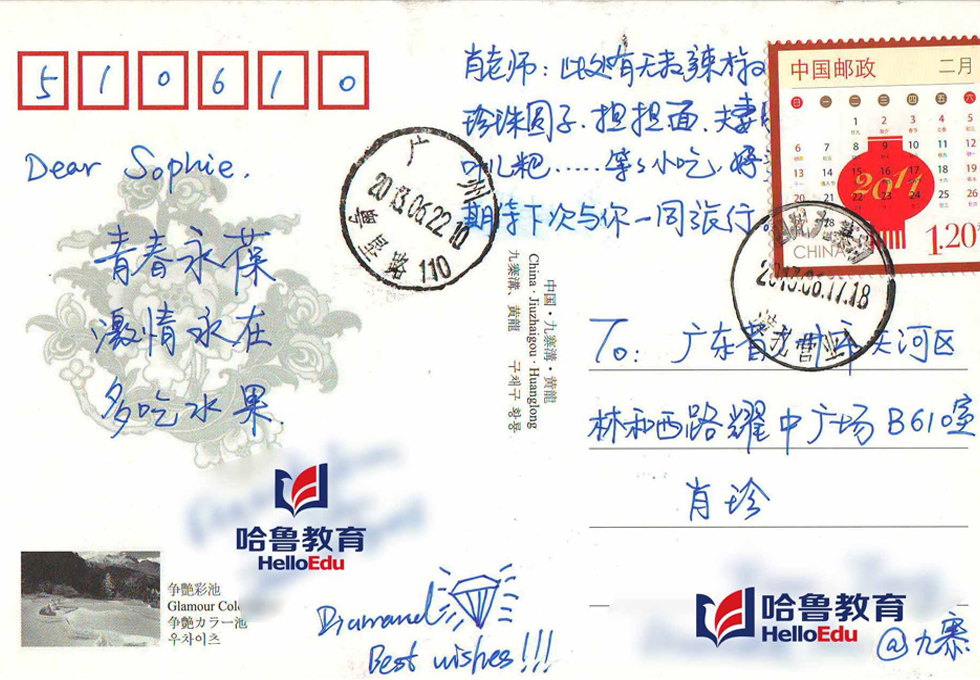 510610
Dear Sophie.
青春永葆
激情永在
多吃水果.
肖老师：此处有无敌辣
珍珠圆子、担担面、夫妻
叶儿粑……等等小吃，好
期待下次与你一同旅行。
中国邮政
二月
日 一 二 三 四 五 六
2011
CHINA
1.20
广州
2013.06.22.10
粤垦路 110
2013.06.17.18
中国·九寨溝·黄龍
China·Jiuzhaigou·Huanglong
九寨溝、黄龍 구채구 황룡
To: 广东省广州市天河区
林和西路耀中广场B610室
肖珍
哈鲁教育
HelloEdu
争艷彩池
Glamour
争艷カラー池
우차이츠
Diamand
Best wishes!!!
哈鲁教育
HelloEdu
@九寨